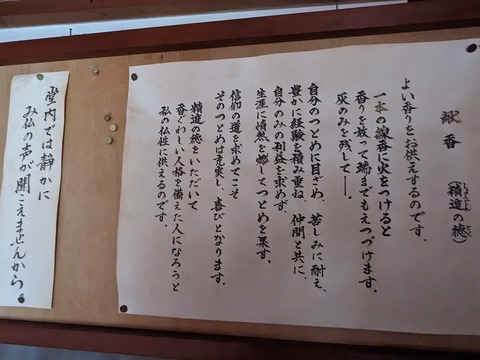 献香
(精進の徳)
よい香りをお供えするのです。
一本の線香に火をつけると
香りを放って端までもえつづけます。
灰のみを残して――。
自分のつとめに目ざめ、苦しみに耐え、
豊かに経験を積み重ね、仲間と共に、
自分のみの利益を求めず、
生涯に情熱を燃してつとめを果す。
信仰の道を求めてこそ
そのつとめは充実し、喜びとなります。
精進の徳をいただいて
香ぐわしい人格を備えた人になろうと
私の仏性に供えるのです。
堂内では静かに
み仏の声が聞こえませんから